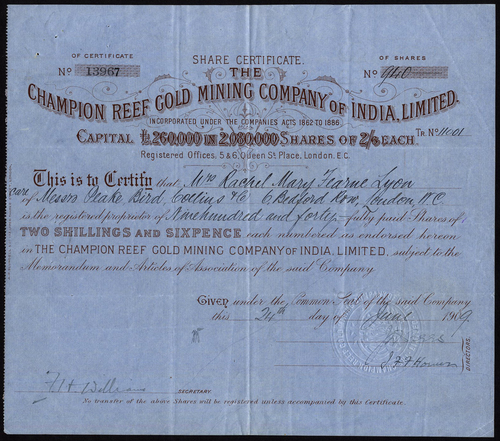 OF CERTIFICATE
No 13967
SHARE CERTIFICATE.
OF SHARES
No 940
THE
CHAMPION REEF GOLD MINING COMPANY OF INDIA, LIMITED.
INCORPORATED UNDER THE COMPANIES ACTS 1862 TO 1886.
CAPITAL £260,000 IN 2,080,000 SHARES OF 2/6 EACH.
TR. No 11001
Registered Offices, 5 & 6, Queen St. Place, London. E.C.
This is to Certify that Mrs Rachel Mary Fearne Lyon
care
of Messrs Peake Bird, Collins & Co 6 Bedford Row, London, W.C.
is the registered proprietor of Ninehundred and forty fully paid Shares of
TWO SHILLINGS AND SIXPENCE each numbered as endorsed hereon
in THE CHAMPION REEF GOLD MINING COMPANY OF INDIA, LIMITED, subject to the
Memorandum and Articles of Association of the said Company.
GIVEN under the Common Seal of the said Company
this 24th day of June 1909.
DIRECTORS.
SECRETARY.
No transfer of the above Shares will be registered unless accompanied by this Certificate.